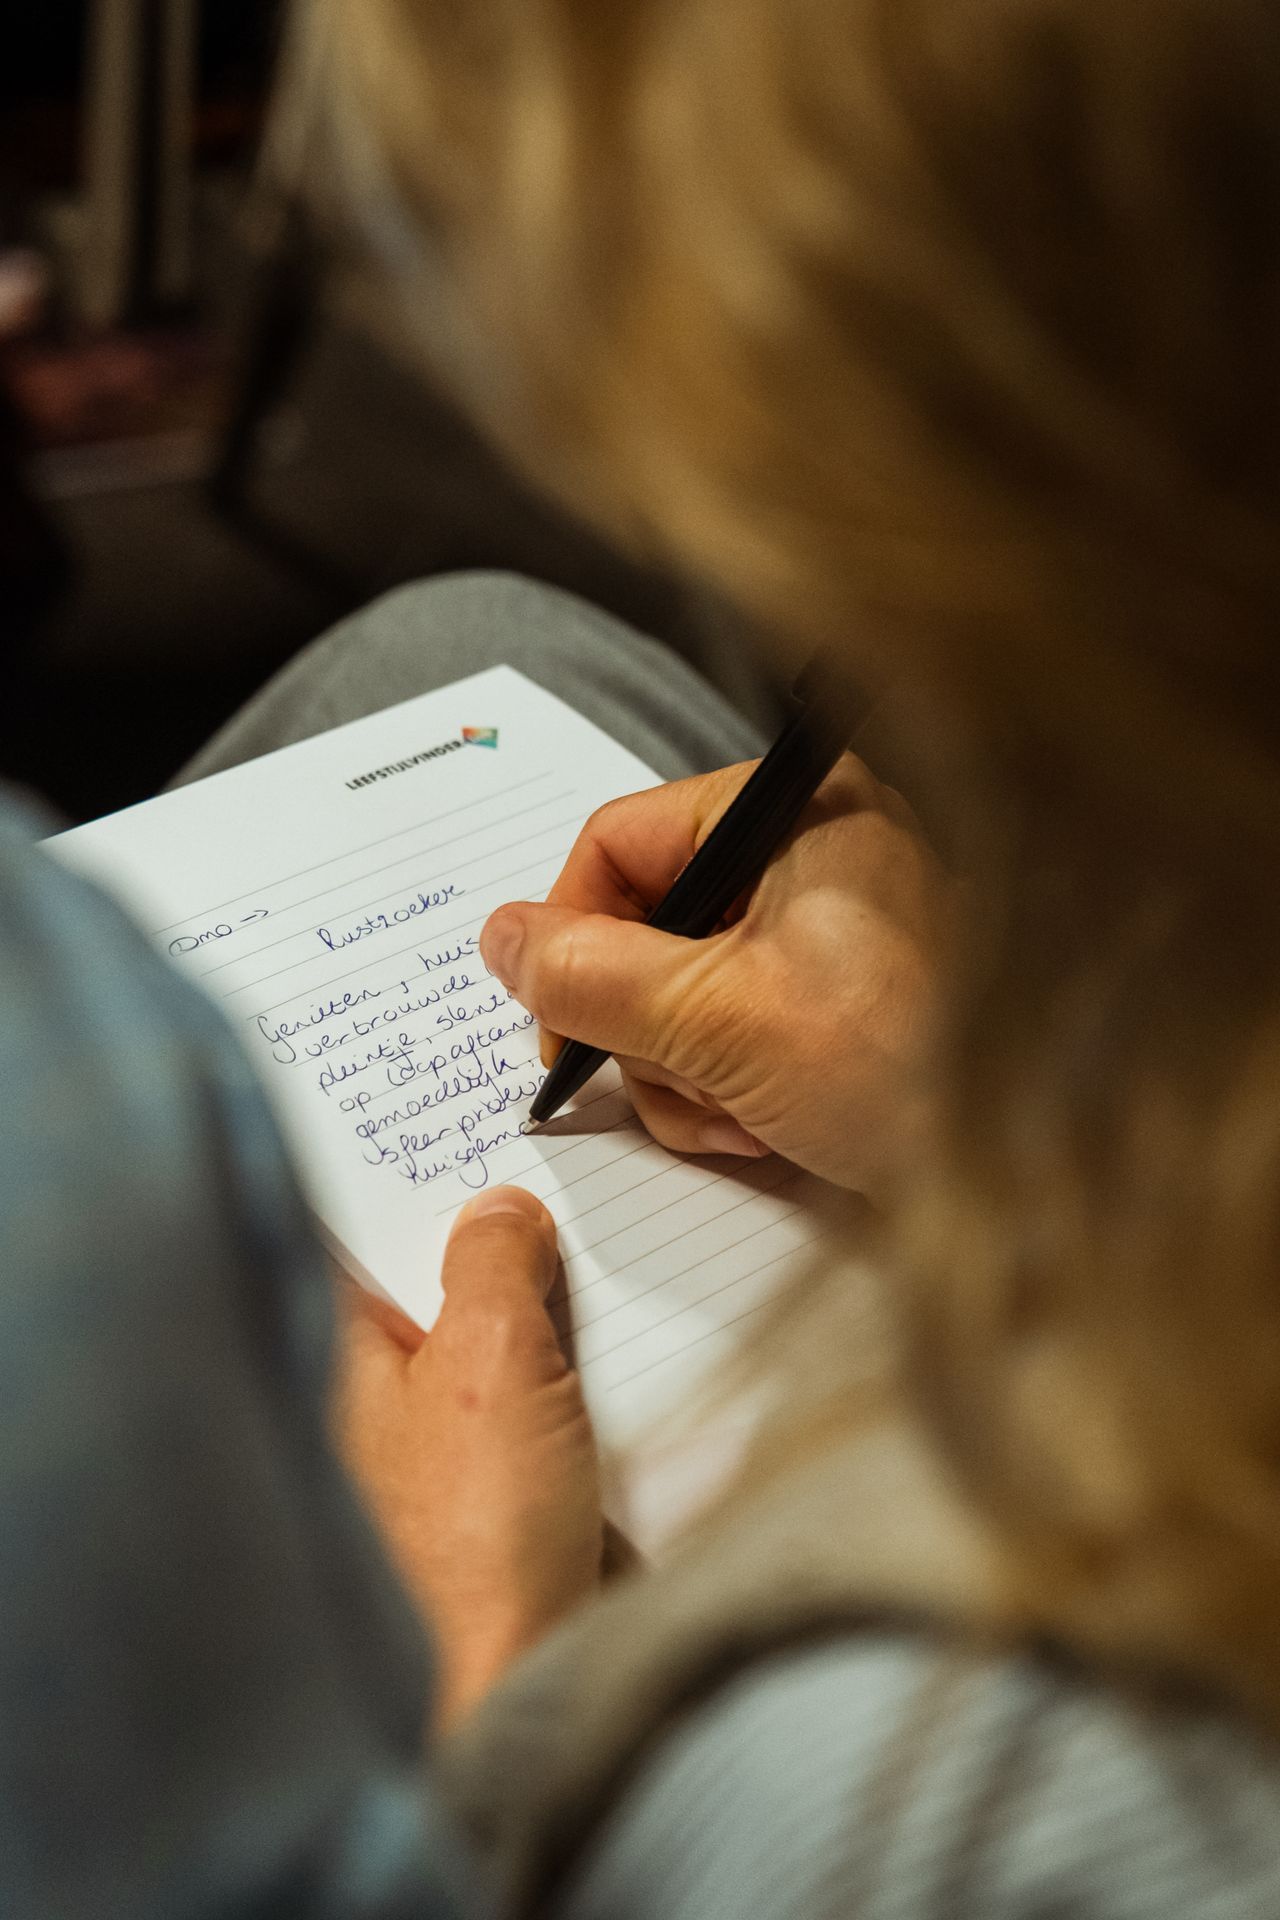 LEEFSTIJLVINDER
DMO →
Rustzoeker
Genieten, huis
vertrouwde
pleintje, slent
op loopafstand
gemoedelijk,
sfeer
huisgem